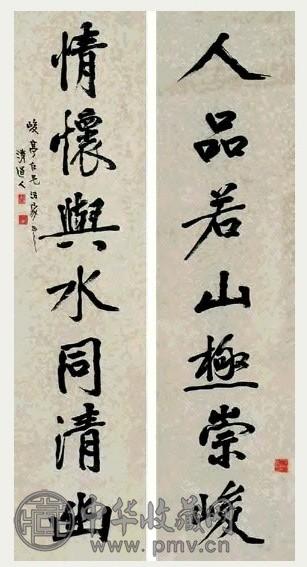 人品若山極崇峻
情懷與水同清幽
清道人
中华收藏网
www.pmv.cn